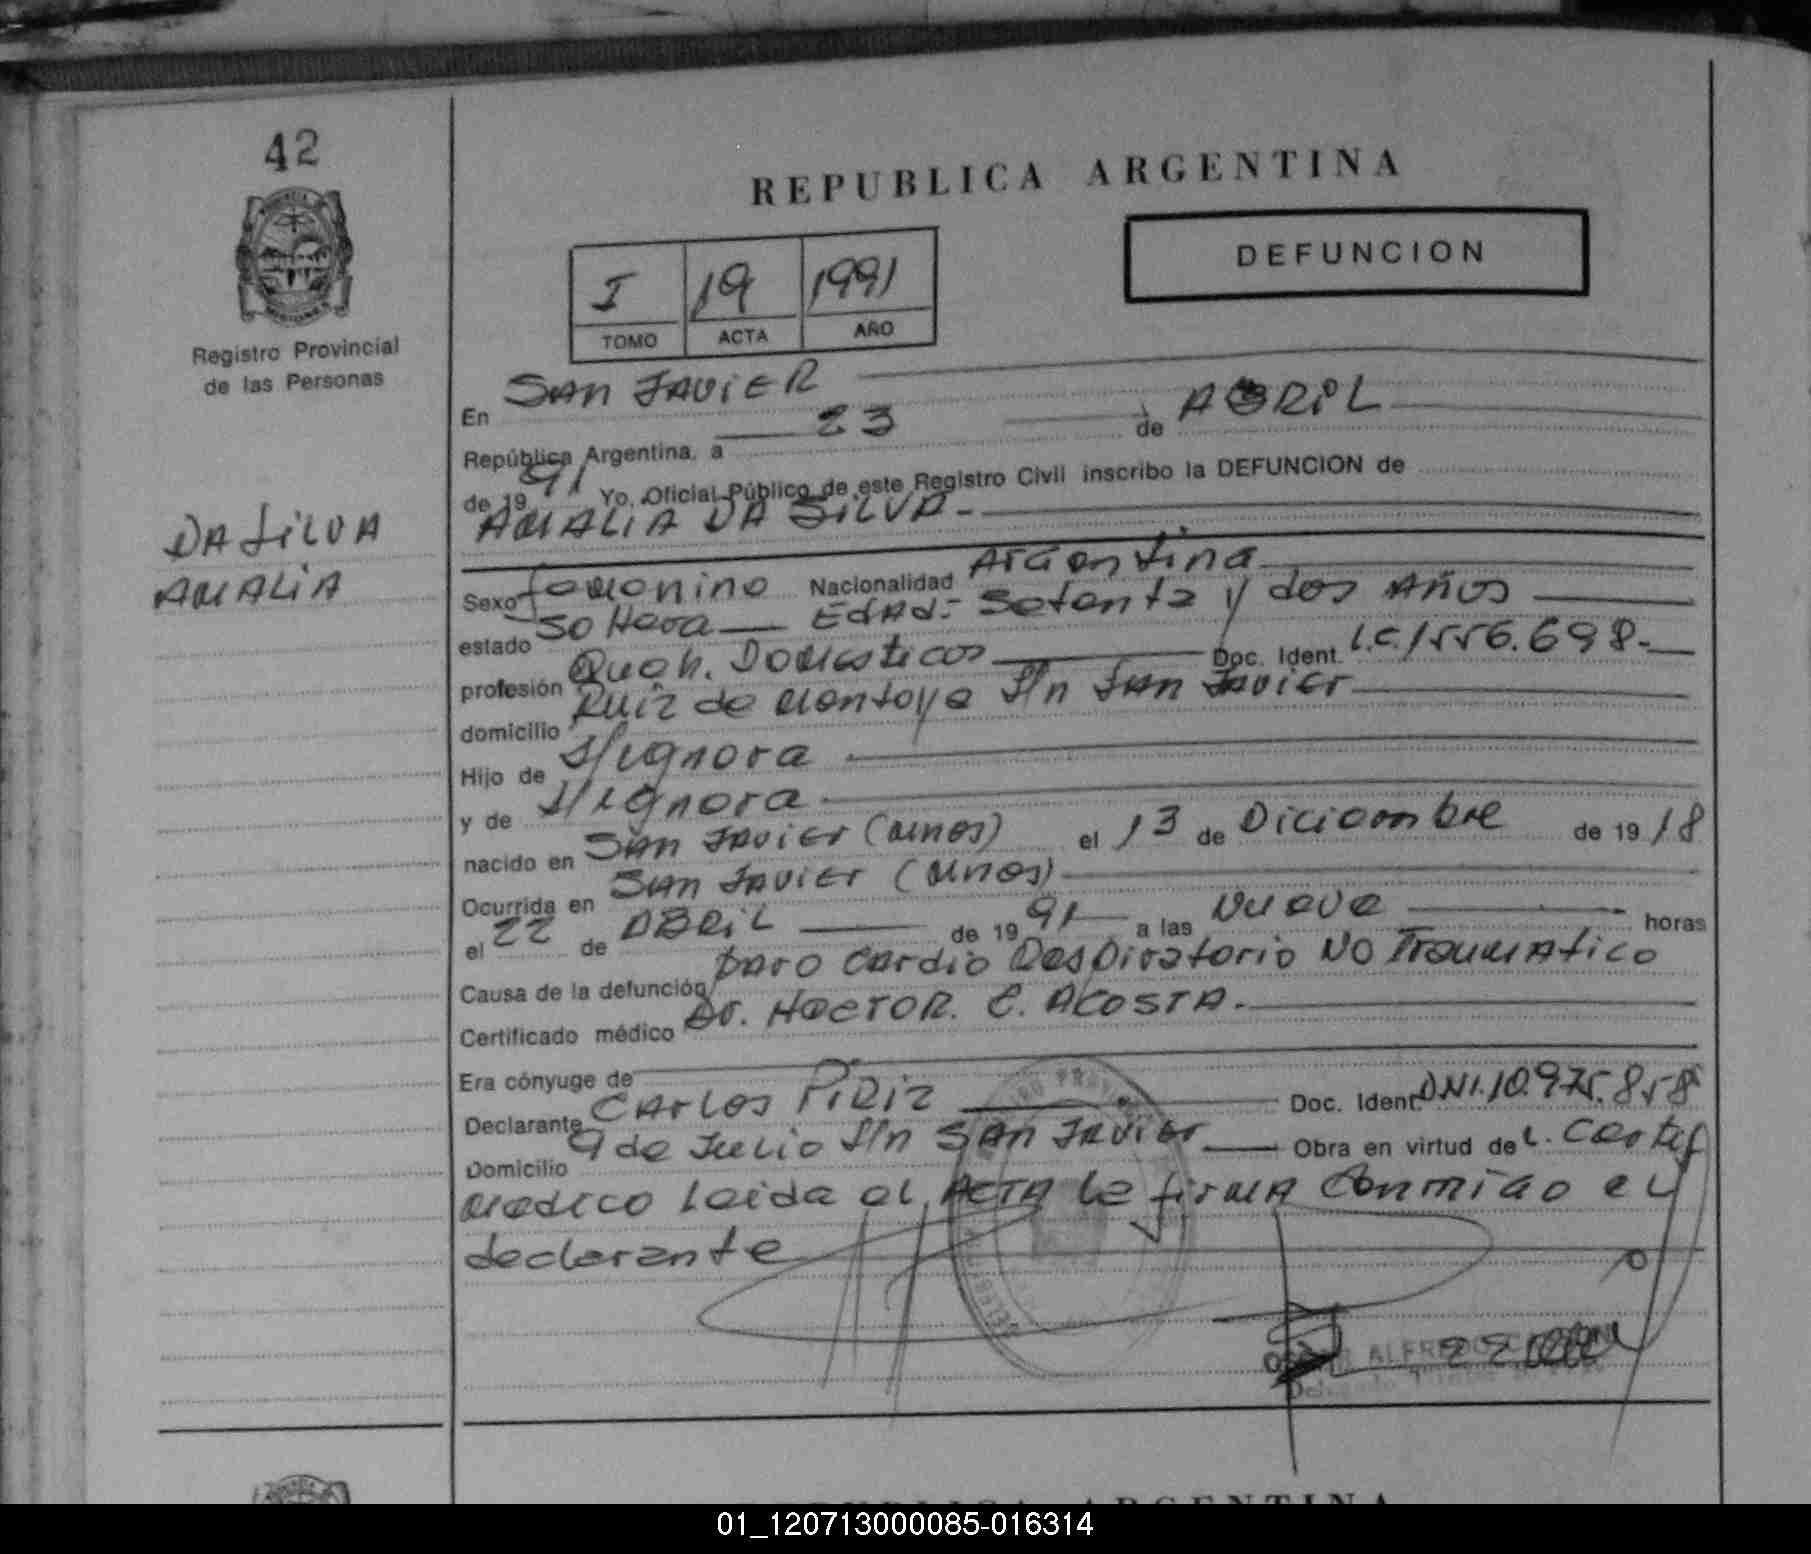 42
REPUBLICA ARGENTINA
DEFUNCION
I 19 1991
TOMO ACTA AÑO
Registro Provincial
de las Personas
En SAN JAVIER
República Argentina, a 23 de ABRIL
de 19 91 Yo, Oficial Público de este Registro Civil inscribo la DEFUNCION de
AMALIA DA SILVA.-
DA SILVA
AMALIA
Sexo femenino Nacionalidad Argentina
estado Soltera EDAD:- Setenta y dos Años
profesión Queh. Domesticos Doc. Ident. L.C. 1556.698.-
domicilio Ruiz de Montoya S/n San Javier
Hijo de S/ignora
y de S/ignora
nacido en San Javier (Mnes) el 13 de Diciembre de 19 18
Ocurrida en San Javier (Mnes)
el 22 de ABRIL de 19 91 a las Nueve horas
Causa de la defunción paro Cardio Respiratorio NO Traumatico
Certificado médico Dr. HECTOR. E. ACOSTA.
Era cónyuge de
Declarante CARLOS PIRIZ Doc. Ident. DNI.10.975.858
Domicilio 9 de Julio S/n SAN Javier Obra en virtud de L. Certif
Medico Leida el ACTA la firma Conmigo el
declarante
ALFREDO
REPUBLICA ARGENTINA
01_120713000085-016314